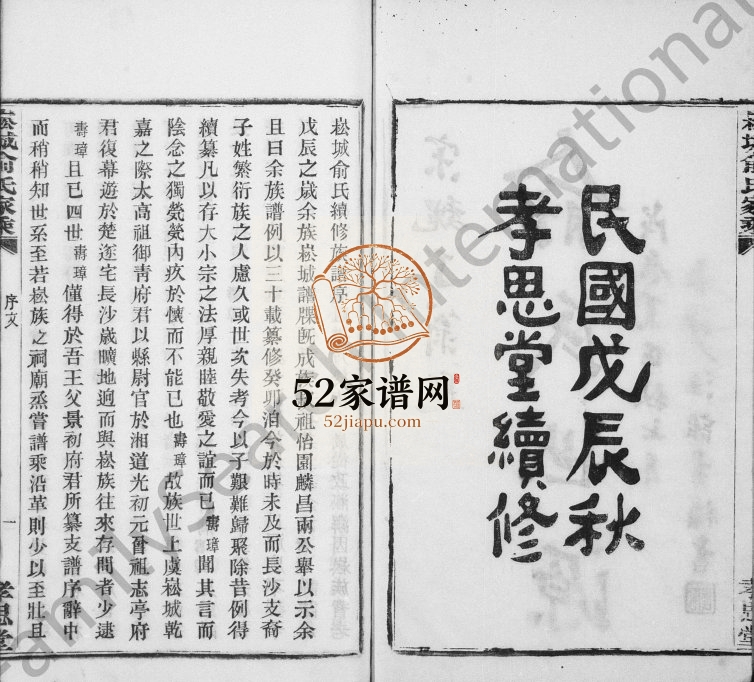 民國戊辰秋
孝思堂續修
崧城俞氏續修族譜序
戊辰之歲余族崧城譜牒旣成族祖怡園麟昌兩公舉以示余
且曰余族譜例以三十載纂修癸卯洎今於時未及而長沙支裔
子姓繁衍族之人慮久或世次失考今以子艱難歸聚除昔例得
續纂凡以存大小宗之法厚親睦敬愛之誼而已壽璋聞其言而
陰念之獨煢煢內疚於懷而不能已也壽璋故族世上虞崧城乾
嘉之際太高祖御青府君以縣尉官於湘道光初元曾祖志亭府
君復幕遊於楚迻宅長沙歲曠地逈而與崧族往來存問者少逮
壽璋且已四世壽璋僅得於吾王父景初府君所纂支譜序辭中
而稍稍知世系至若崧族之祠廟烝嘗譜乘沿革則少以至壯且
崧城俞氏家乘
序文
一
孝思堂
崧城俞氏家乘
孝思堂
52家谱网
52jiapu.com
FamilySearch International